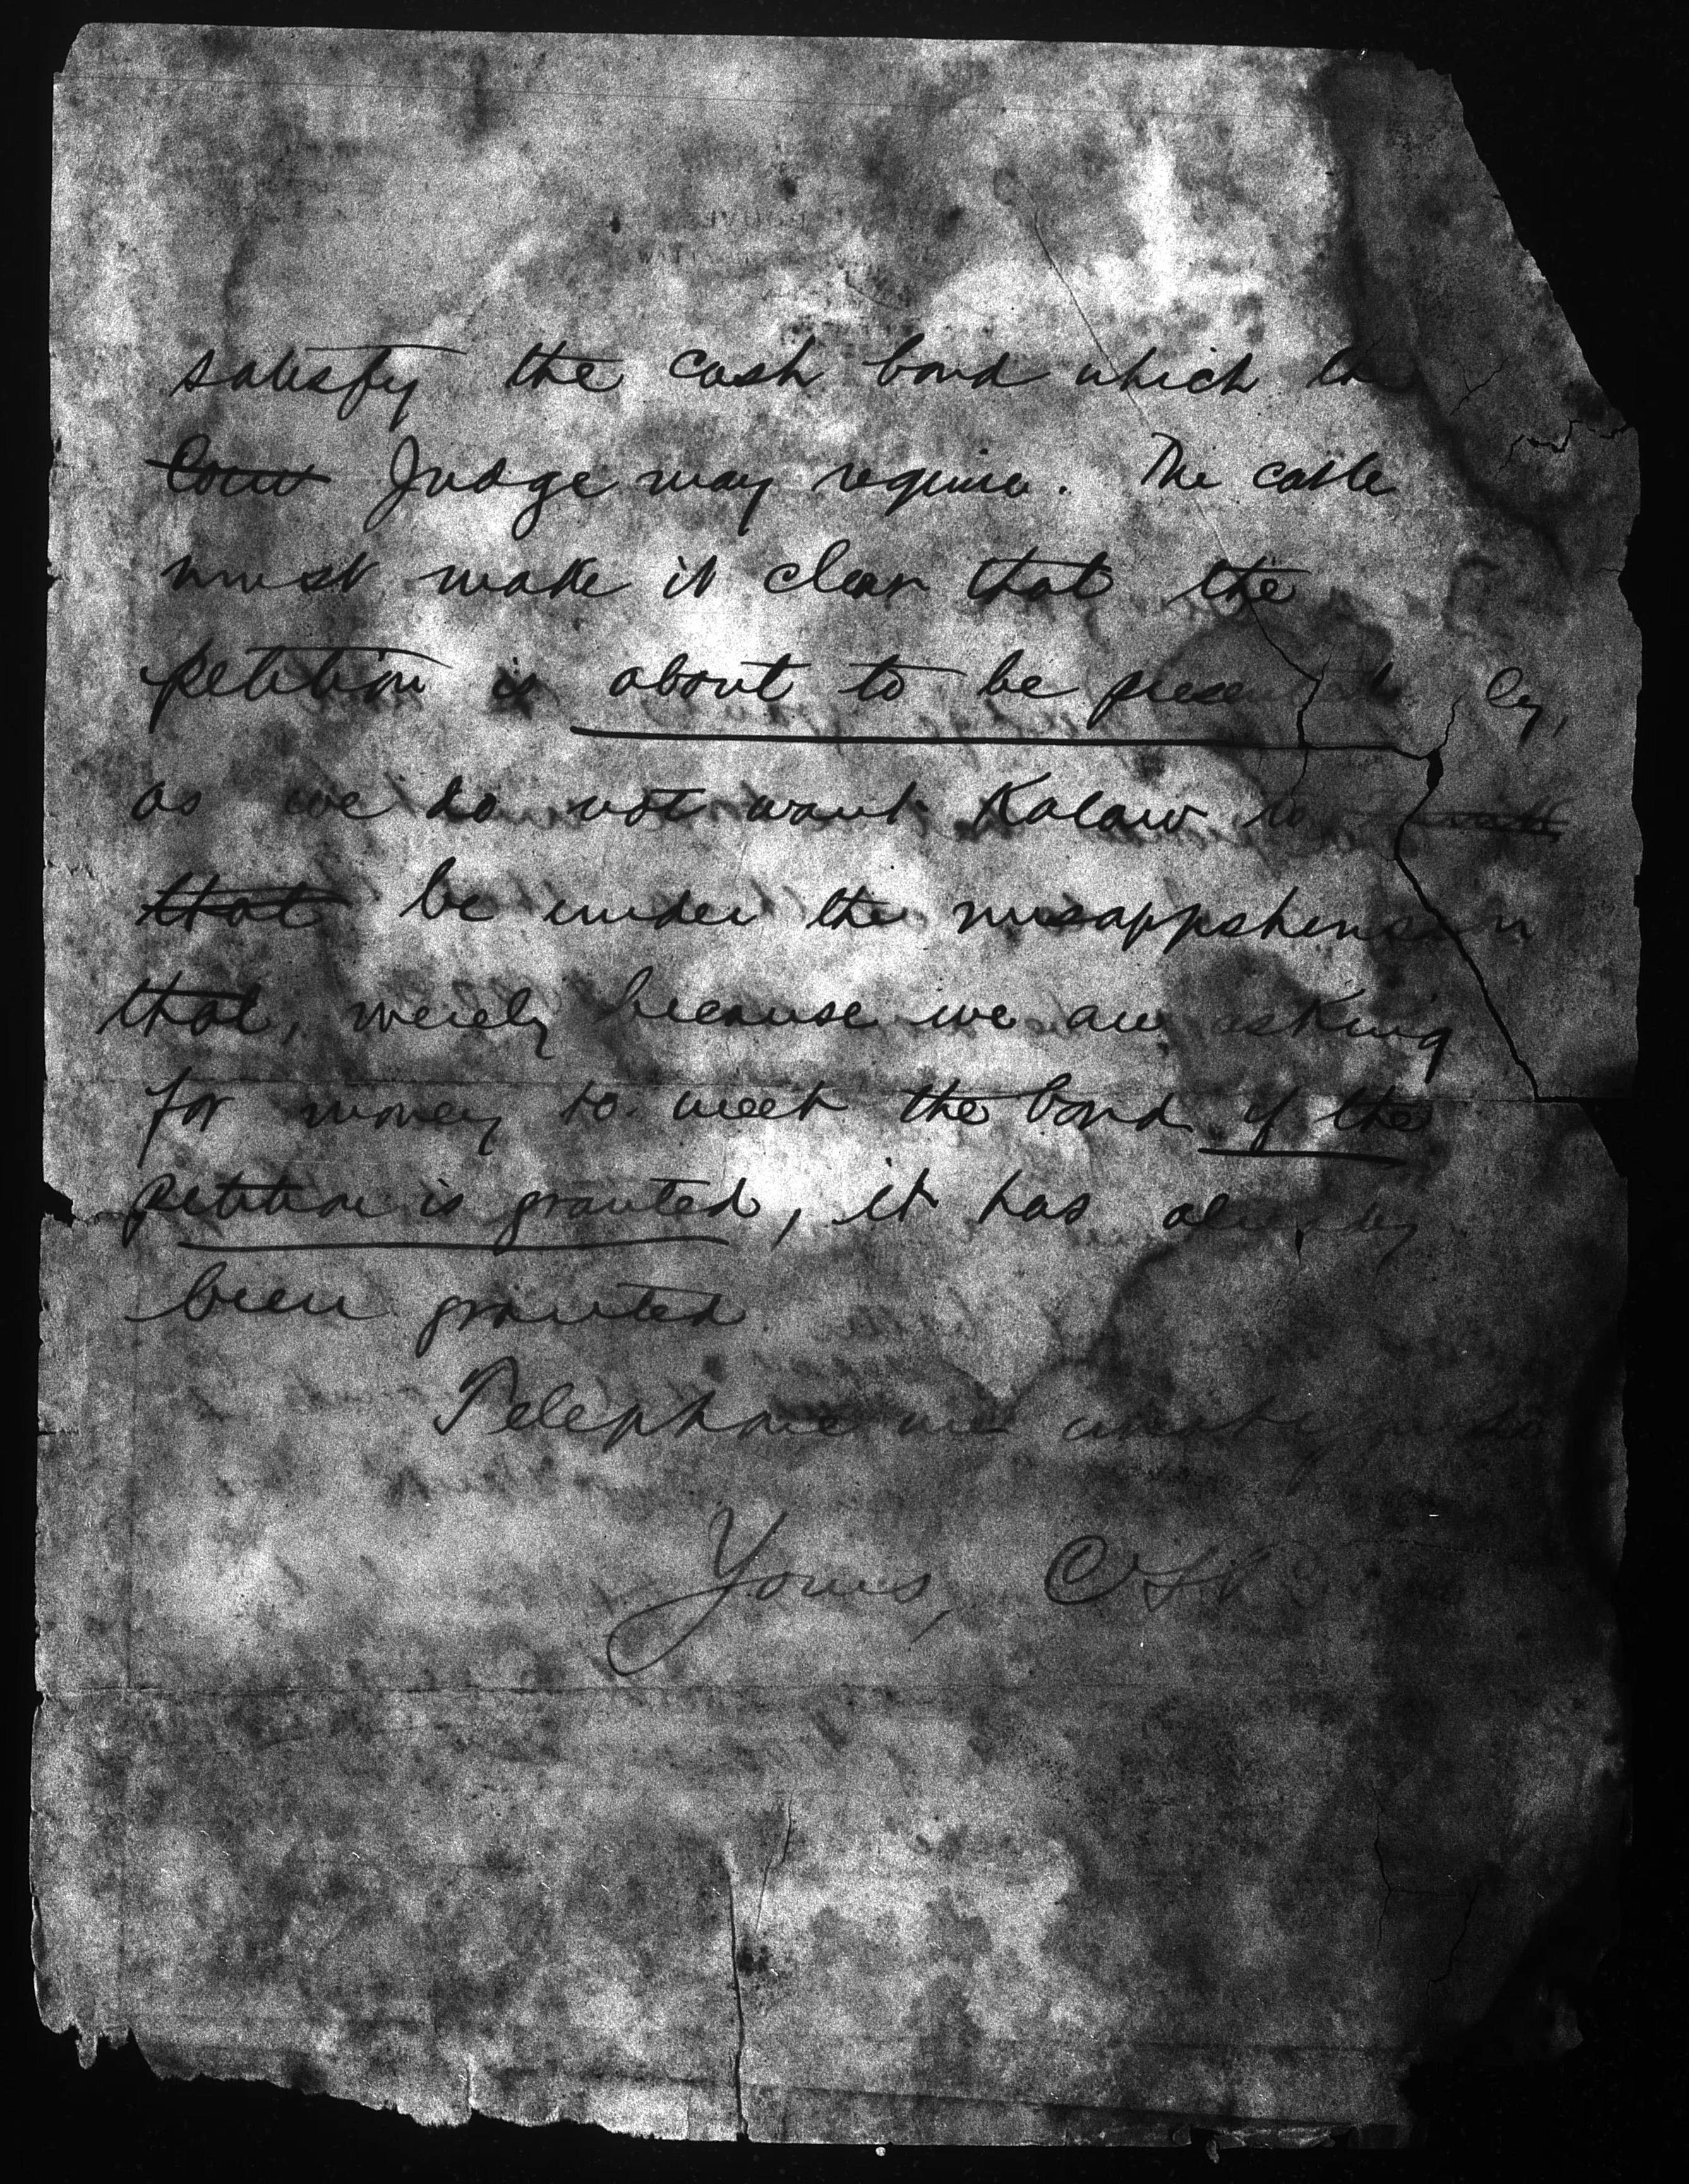 satisfy the cash bond which the
Court Judge may require. The cable
must make it clear that the
petition is about to be presented
as we do not want Kalaw to
that be under the misappshension
that, merely because we are asking
for money to meet the bond if the
petition is granted, it has already
been granted
Telephone me
Yours,